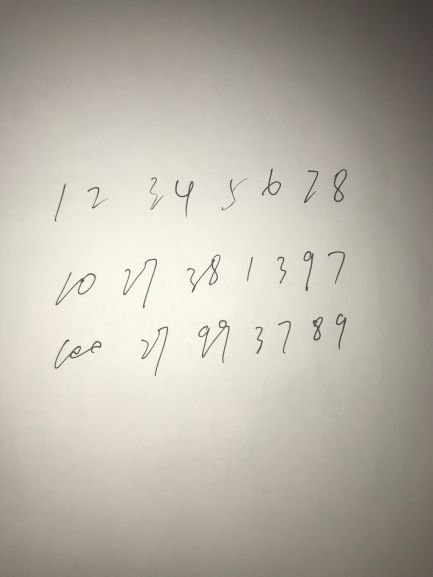 1 2 3 4 5 6 7 8
10 27 38 1 3 9 7
100 27 99 37 89